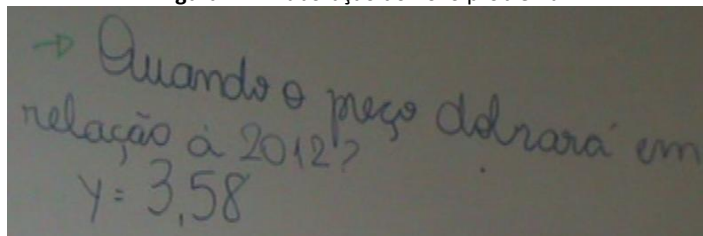 → Quando o preço dobrará em
relação à 2012?
y = 3,58